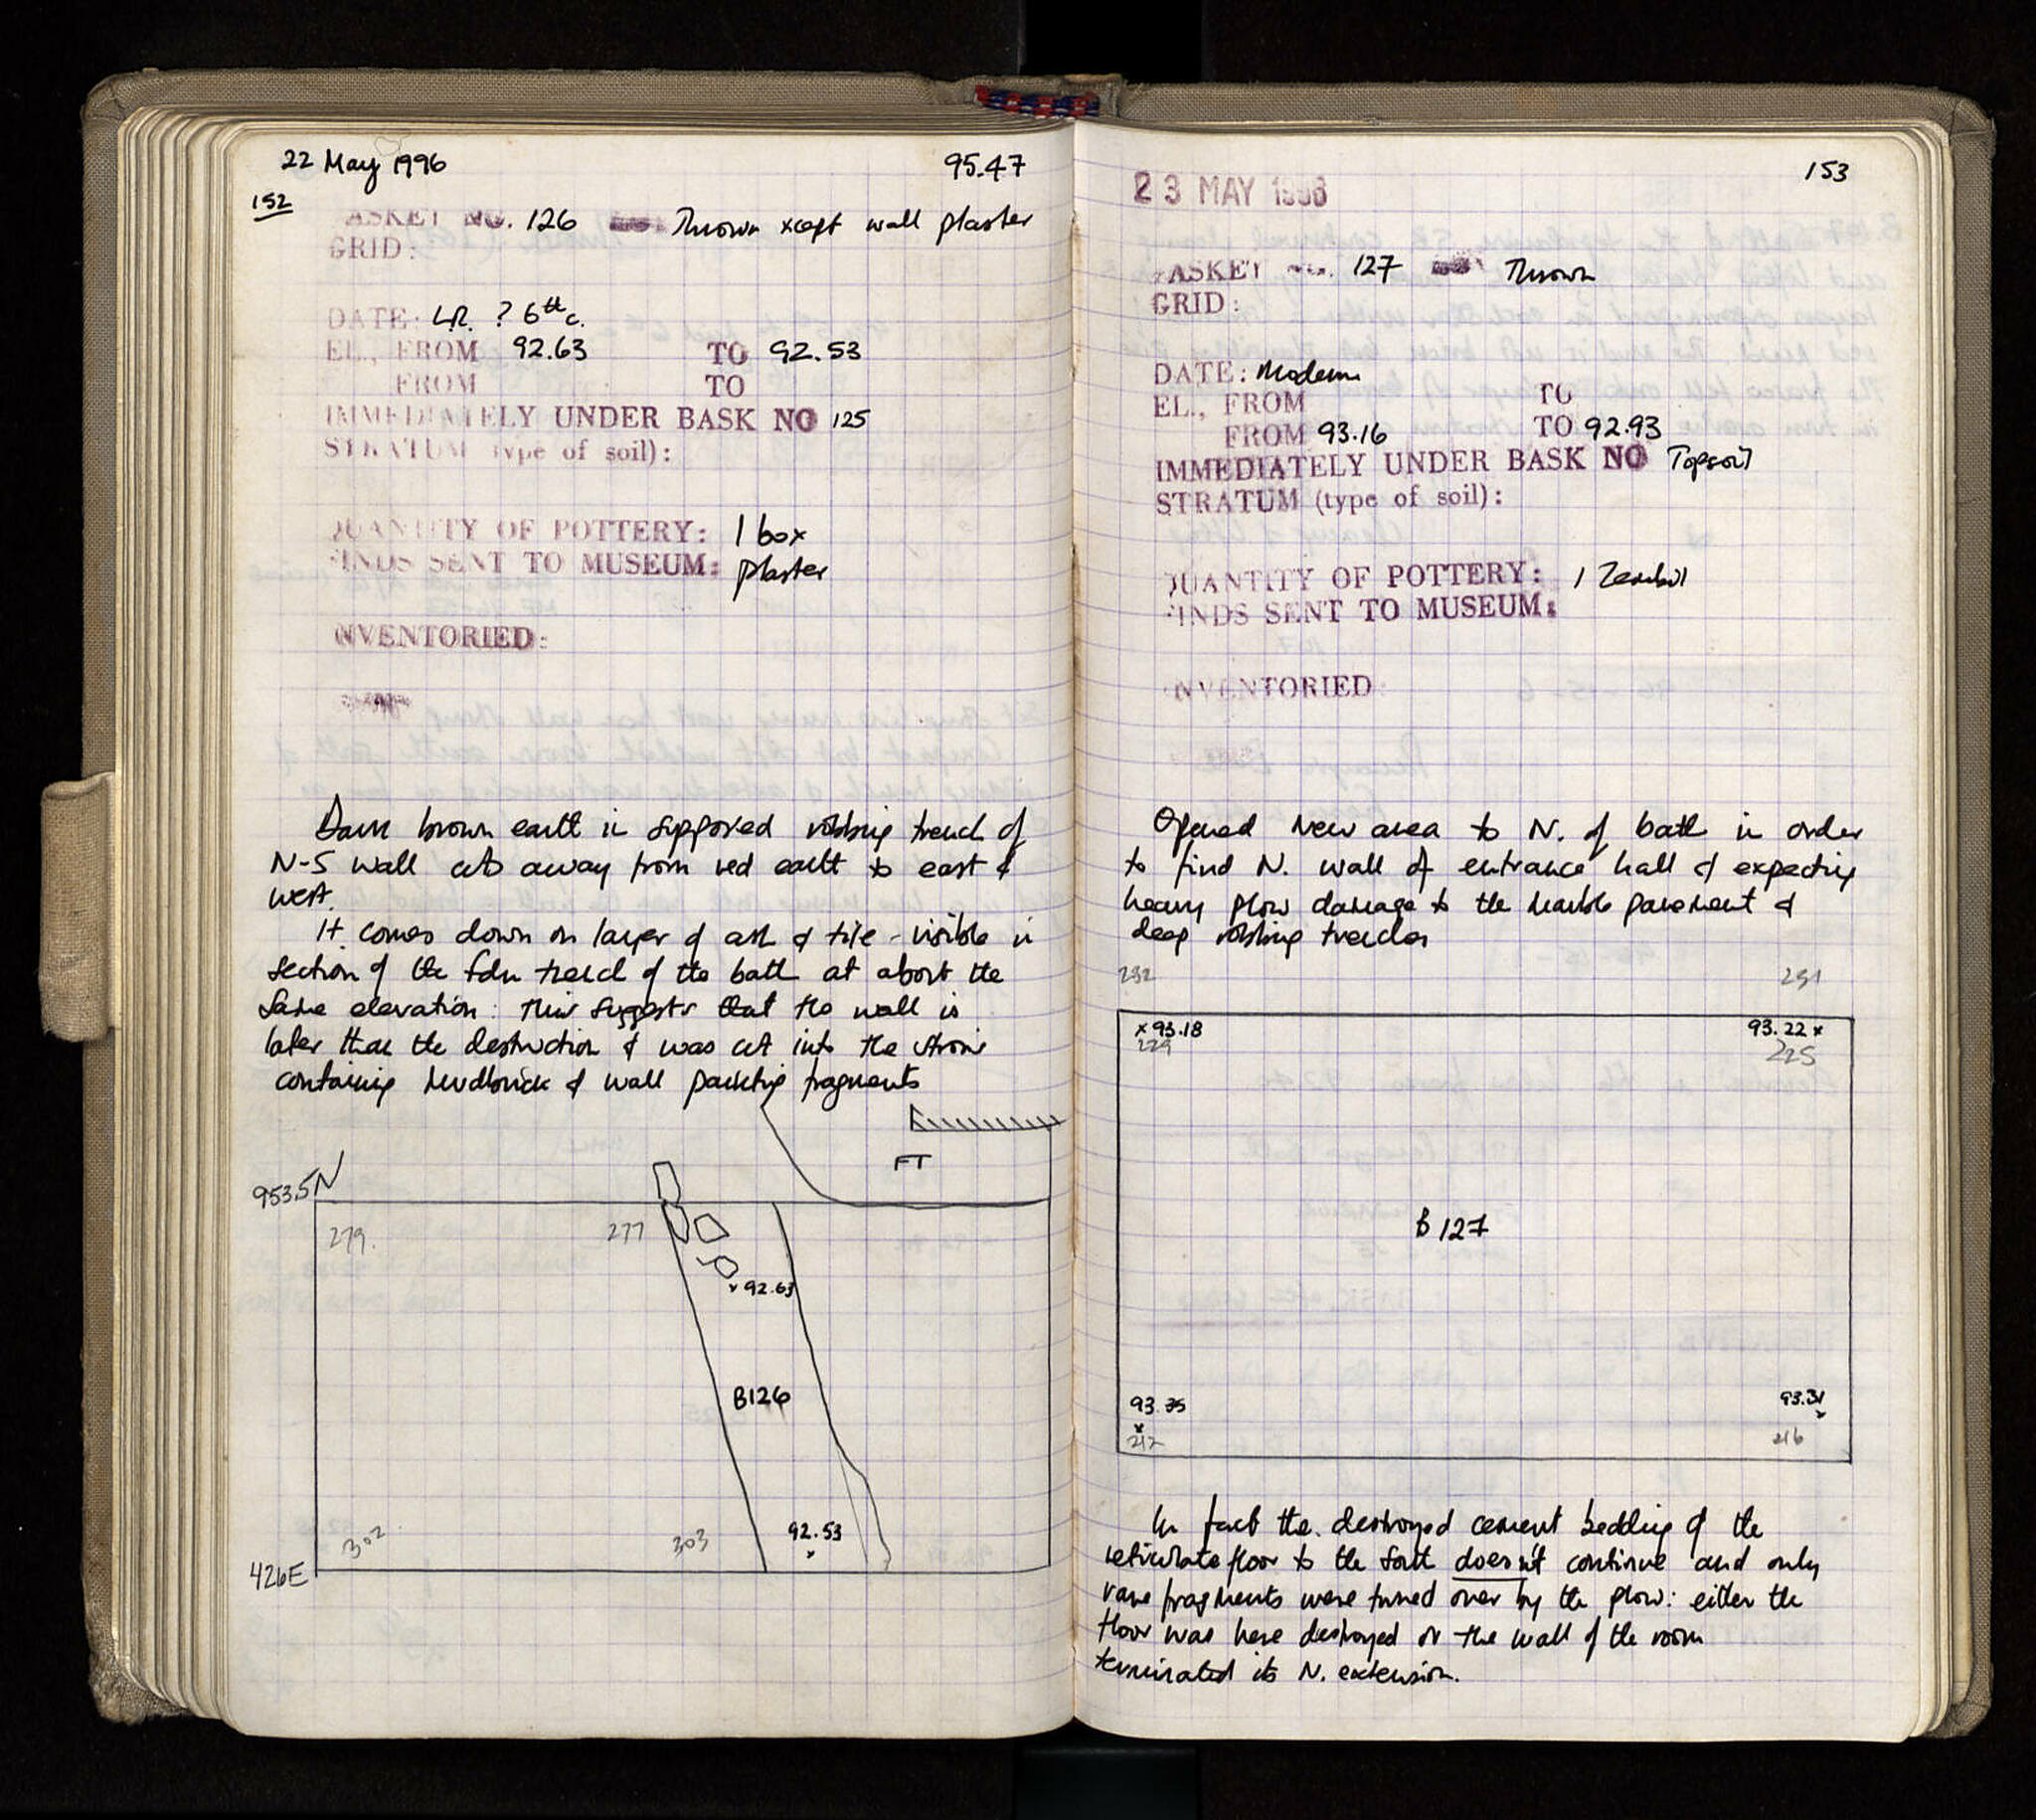 22 May 1996 95.47
152
ASKET NO. 126 Thrown xcept wall plaster
GRID:
DATE: L.R. ? 6th c.
EL., FROM 92.63 TO 92.53
FROM TO
IMMEDIATELY UNDER BASK NO 125
STRATUM (type of soil):
QUANTITY OF POTTERY: 1 box
FINDS SENT TO MUSEUM: plaster
INVENTORIED:
Dark brown earth in supposed robbing trench of
N-S wall cuts away from red earth to east &
west.
It comes down on layer of ash & tile - visible in
section of the fdn trench of the bath at about the
same elevation: this suggests that the wall is
later than the destruction & was cut into the strosis
containing mudbrick & wall painting fragments
FT
953.5N
279. 277
92.63
B126
92.53
302 303
426E
153
23 MAY 1996
ASKET NO. 127 Thrown
GRID:
DATE: Modern
EL., FROM TO
FROM 93.16 TO 92.93
IMMEDIATELY UNDER BASK NO Topsoil
STRATUM (type of soil):
QUANTITY OF POTTERY: 1 Zembil
FINDS SENT TO MUSEUM:
INVENTORIED
Opened new area to N. of bath in order
to find N. wall of entrance hall & expecting
heavy plow damage to the marble pavement &
deep robbing trenches
232 231
x 93.18 93.22 x
229 225
B 127
93.35 93.31
x
212 216
In fact the destroyed cement bedding of the
reticulate floor to the south doesn't continue and only
rare fragments were turned over by the plow: either the
floor was here destroyed or the wall of the room
terminated its N. extension.